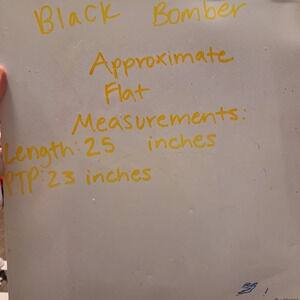 Black Bomber
Approximate
Flat
Measurements:
Length: 25 inches
PTP: 23 inches